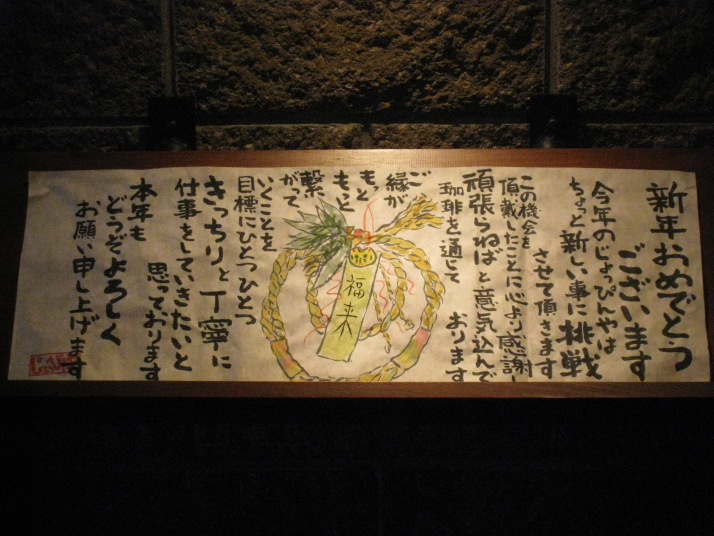 新年おめでとう
ございます
今年のじょっぴんやは
ちょっと新しい事に挑戦
させて頂きます
この機会を
頂戴したことに心より感謝し
頑張らねばと意気込んで
おります
珈琲を通じて
ご縁が
もっと
もっと
繋がて
いくことを
目標にひとつひとつ
きっちりと丁寧に
仕事をしていきたいと
思っております
本年も
どうぞよろしく
お願い申し上げます
福来